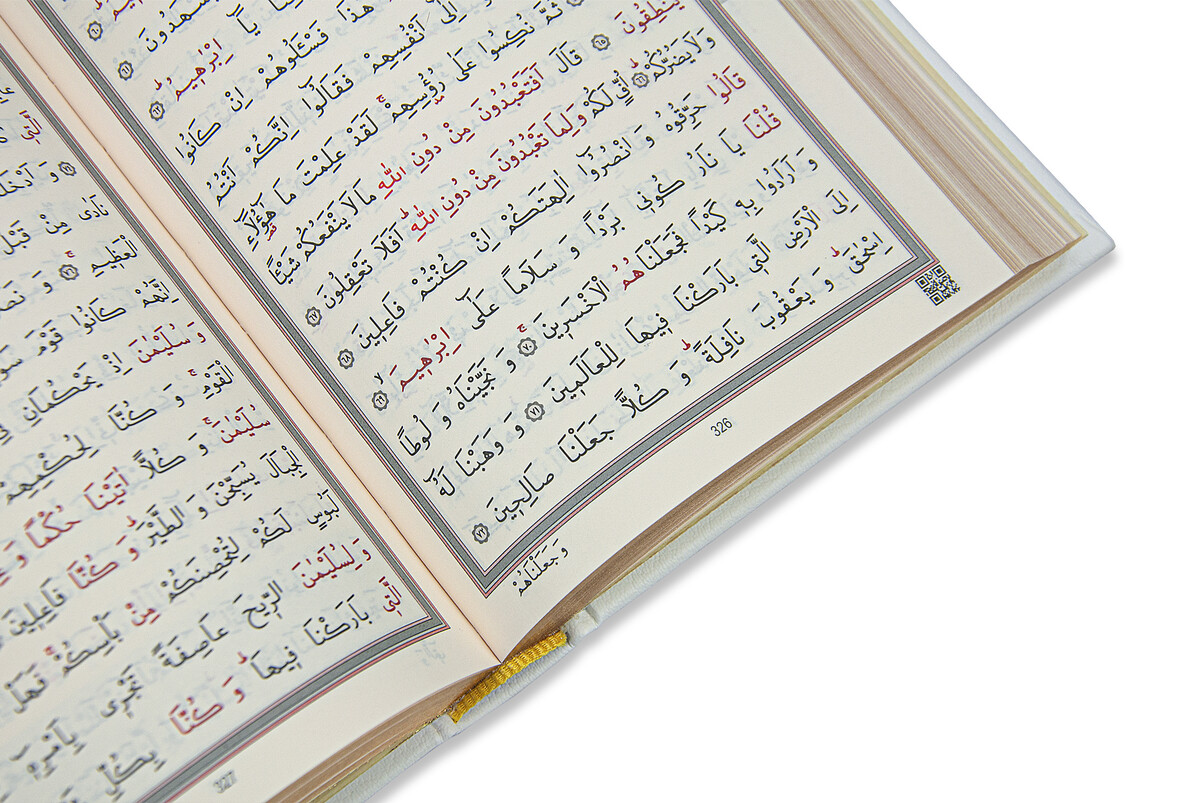 ٦٠
يَشْهَدُونَ ٦١
يَٓا اِبْرٰه۪يمُۜ ٦٢
هٰذَا فَسْـَٔلُوهُمْ اِنْ كَانُوا
اِلٰٓى اَنْفُسِهِمْ فَقَالُٓوا اِنَّكُمْ اَنْتُمُ
ثُمَّ نُكِسُوا عَلٰى رُؤُ۫سِهِمْۚ لَقَدْ عَلِمْتَ مَا هٰٓؤُ۬لَٓاءِ
يَنْطِقُونَ ٦٥ قَالَ اَفَتَعْبُدُونَ مِنْ دُونِ اللّٰهِ مَا لَا يَنْفَعُكُمْ شَيْـًٔا
وَلَا يَضُرُّكُمْۜ ٦٦ اُفٍّ لَكُمْ وَلِمَا تَعْبُدُونَ مِنْ دُونِ اللّٰهِۜ اَفَلَا تَعْقِلُونَ ٦٧
قَالُوا حَرِّقُوهُ وَ انْصُرُٓوا اٰلِهَتَكُمْ اِنْ كُنْتُمْ فَاعِل۪ينَ ٦٨
قُلْنَا يَا نَارُ كُون۪ي بَرْدًا وَ سَلَامًا عَلٰٓى اِبْرٰه۪يمَۙ ٦٩
وَ اَرَادُوا بِه۪ كَيْدًا فَجَعَلْنَاهُمُ الْاَخْسَر۪ينَۚ ٧٠ وَ نَجَّيْنَاهُ وَ لُوطًا
اِلَى الْاَرْضِ الَّت۪ي بَارَكْنَا ف۪يهَا لِلْعَالَم۪ينَ ٧١ وَ وَهَبْنَا لَهُٓ
اِسْحٰقَۜ وَ يَعْقُوبَ نَافِلَةًۜ وَ كُلاًّ جَعَلْنَا صَالِح۪ينَ ٧٢
وَ جَعَلْنَاهُمْ
326
الَّت۪ي
وَ اَدْخَلْ
نَادٰى مِنْ قَبْلُ
الْعَظ۪يمِۚ ٧٦ وَ نَصَ
اِنَّهُمْ كَانُوا قَوْمَ سَوْ
وَ سُلَيْمٰنَ اِذْ يَحْكُمَانِ
الْقَوْمِۚ وَ كُنَّا لِحُكْمِهِمْ
سُلَيْمٰنَۚ وَ كُلاًّ اٰتَيْنَا حُكْمًا وَ
الْجِبَالَ يُسَبِّحْنَ وَ الطَّيْرَۜ وَ كُنَّا فَاعِل۪ينَ
لَبُوسٍ لَكُمْ لِتُحْصِنَكُمْ مِنْ بَأْسِكُمْۚ فَهَلْ
وَ لِسُلَيْمٰنَ الرّ۪يحَ عَاصِفَةً تَجْر۪ي بِاَمْرِه۪ٓ
الَّت۪ي بَارَكْنَا ف۪يهَاۜ وَ كُنَّا بِكُلِّ
327